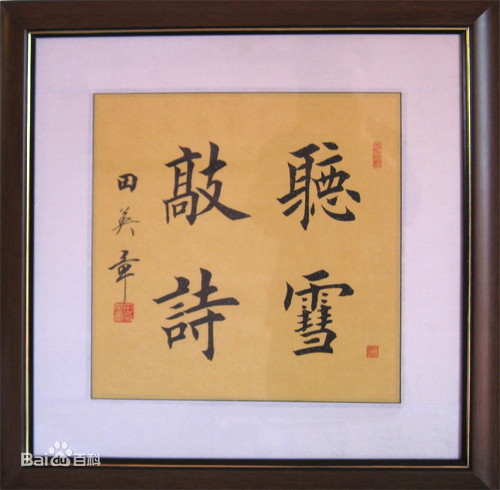 聽雪
敲詩
田英章
Baidu百科